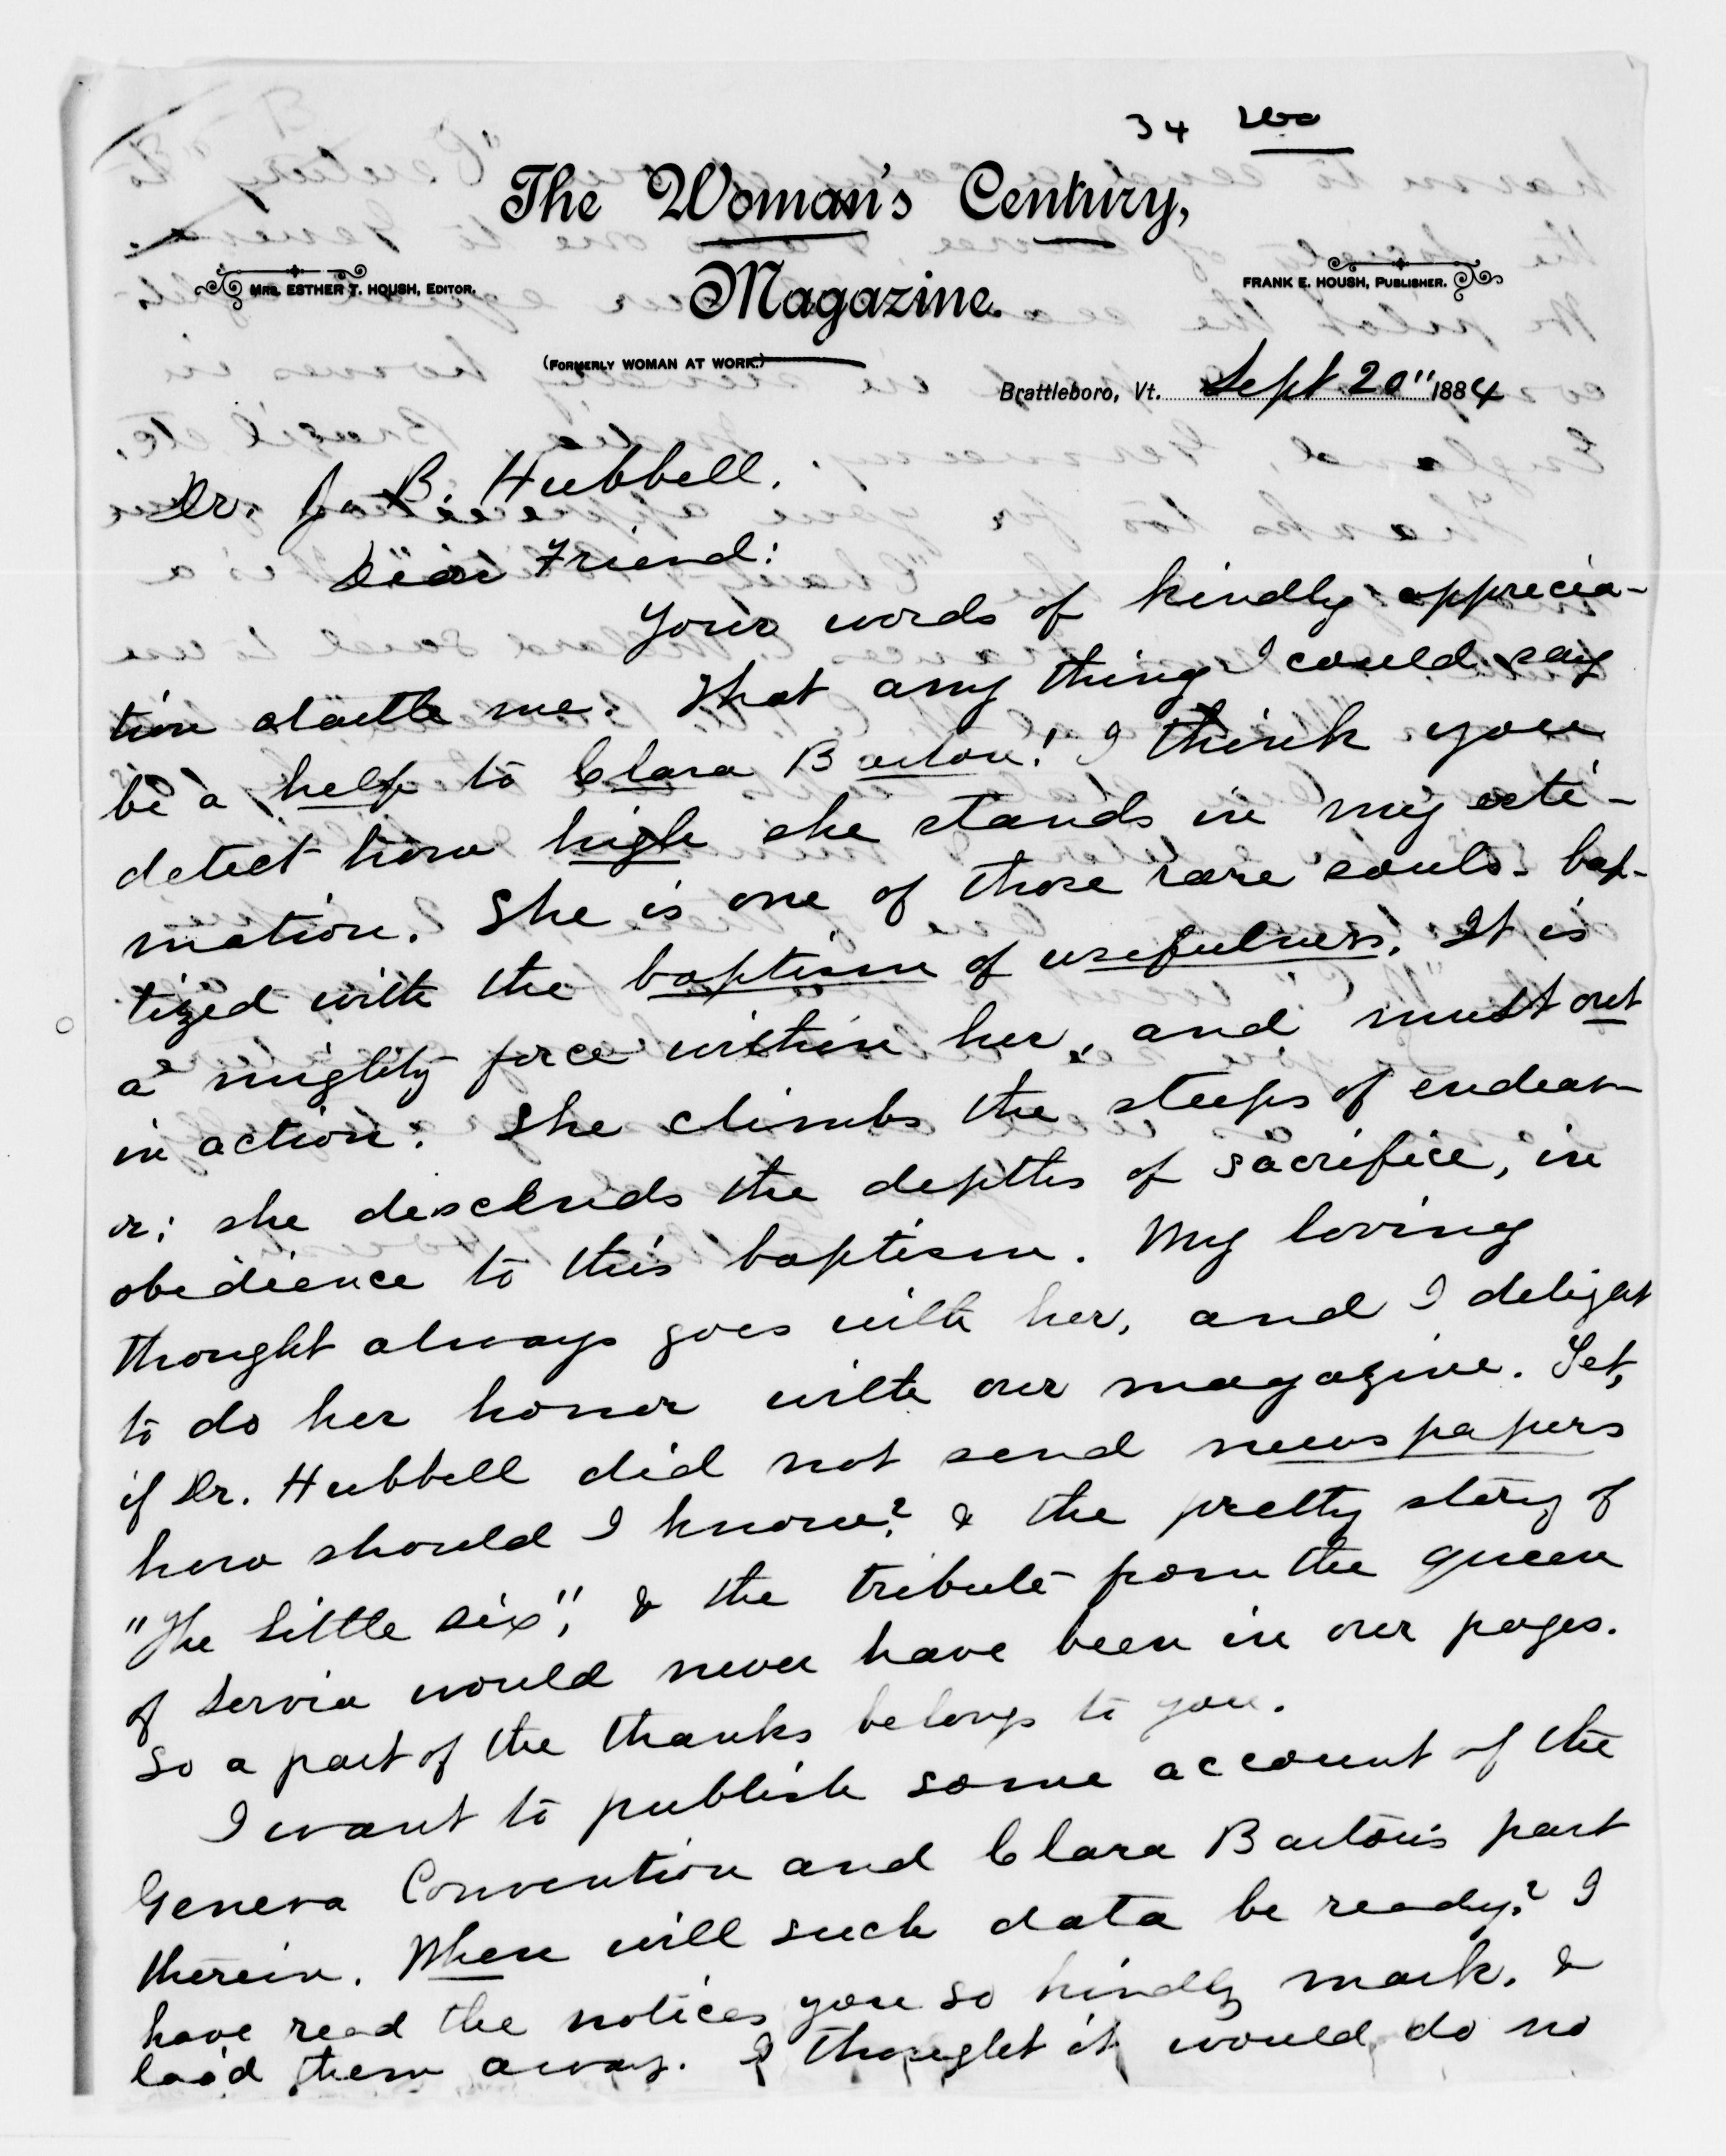 34 Wo
The Woman's Century,
Magazine.
Mrs. ESTHER T. HOUSH, Editor.
FRANK E. HOUSH, Publisher.
(Formerly WOMAN AT WORK.)
Brattleboro, Vt. Sept 20" 1884
Dr. J. B. Hubbell.
Dear Friend:
Your words of kindly apprecia-
tion startle me. That any thing I could say
be a help to Clara Barton! I think you
detect how high she stands in my esti-
mation. She is one of those rare souls bap-
tized with the baptism of usefulness. It is
a mighty force within her, and must out
in action. She climbs the steeps of endeav-
or; she descends the depths of sacrifice, in
obedience to this baptism. My loving
thought always goes with her, and I delight
to do her honor with our magazine. Yet,
if Dr. Hubbell did not send newspapers
how should I know? & the pretty story of
"The Little Six", & the tribute from the queen
of Servia would never have been in our pages.
So a part of the thanks belongs to you.
I want to publish some account of the
Geneva Convention and Clara Barton's part
therein. When will such data be ready? I
have read the notices you so kindly mark, &
laid them away. I thought it would do no